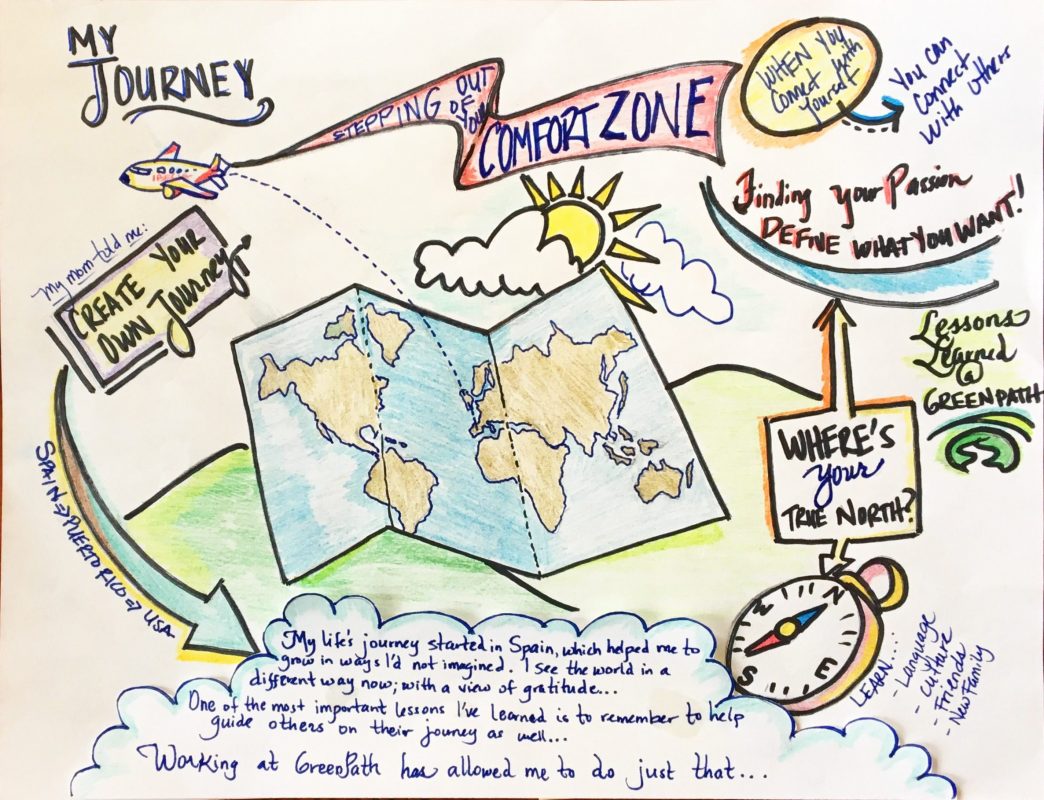 MY
JOURNEY
STEPPING OUT
OF
YOUR
COMFORT ZONE
WHEN YOU
Connect with
Yourself
You can
Connect
With Others
Finding Your Passion
DEFINE WHAT YOU WANT!
My mom told me:
CREATE YOUR
OWN JOURNEY
SPAIN => PUERTO RICO => USA
Lessons
Learned
@
GREENPATH
WHERE'S
your
TRUE NORTH?
N
E
S
LEARN...:
- Language
- Culture
- Friends
- New Family
My life's journey started in Spain, which helped me to
grow in ways I'd not imagined. I see the world in a
different way now; with a view of gratitude...
One of the most important lessons I've learned is to remember to help
guide others on their journey as well...
Working at GreenPath has allowed me to do just that...